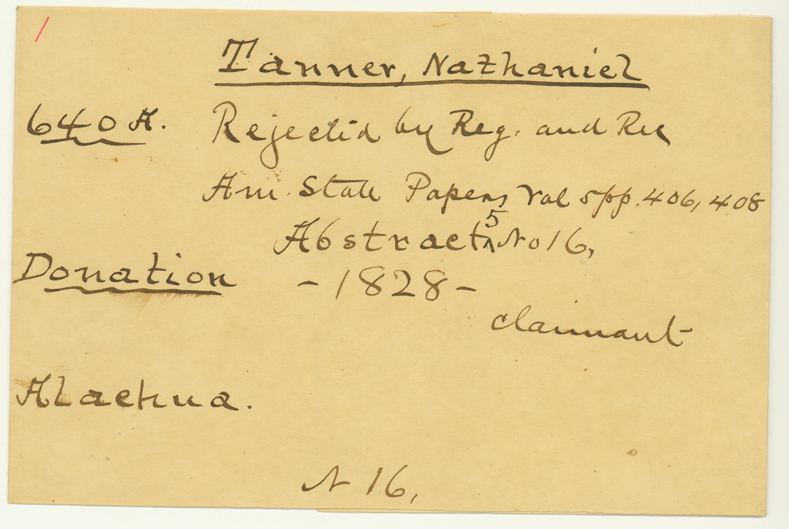 /
Tanner, Nathaniel
640 A. Rejected by Reg. and Rec
Am. State Papers, Vol 5 pp. 406, 408
Abstract 5 No 16,
Donation - 1828 -
claimant
Alachua.
N 16.